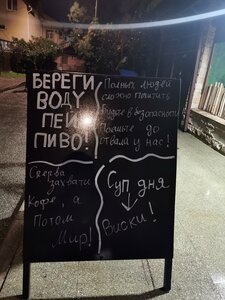 БЕРЕГИ
ВОДУ
ПЕЙ
ПИВО!
Полных людей
сложно похитить
Будьте в безопасности
Поешьте до
отвала у нас!
Сперва
захвати
Кофе, а
Потом
Мир!
Суп дня
Виски!